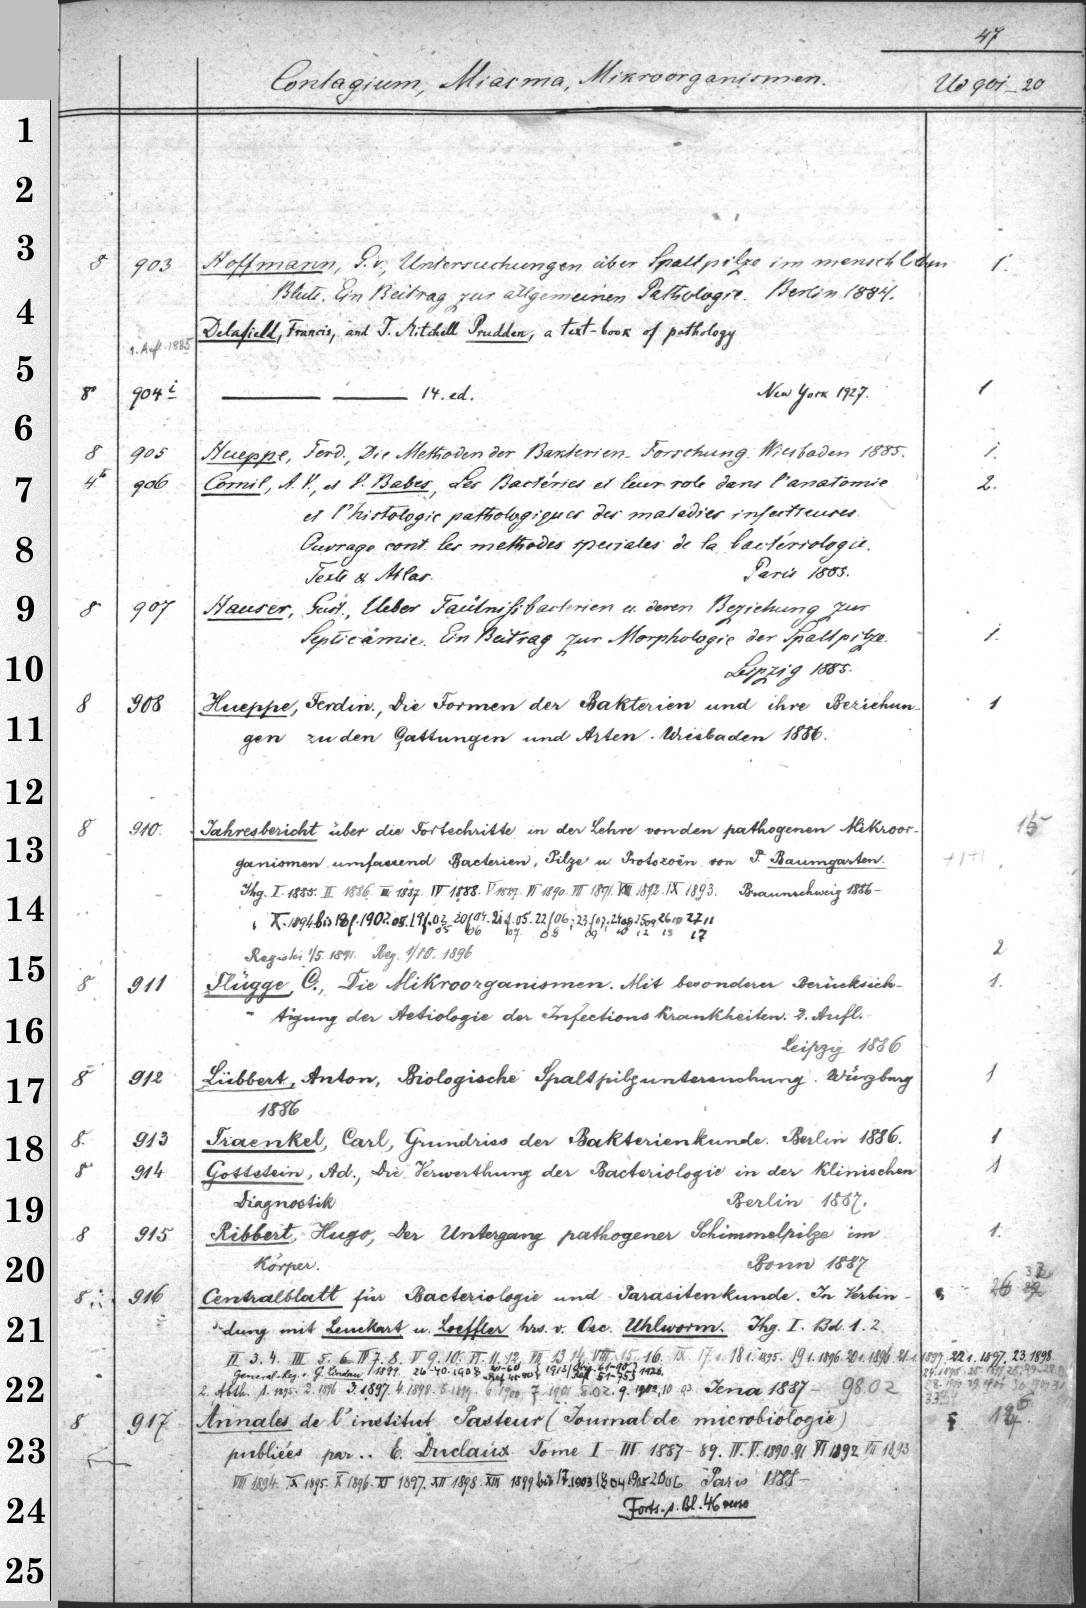 47
Contagium, Miasma, Mikroorganismen. Ud 901-20
1
2
3
4
5
6
7
8
9
10
11
12
13
14
15
16
17
18
19
20
21
22
23
24
25
8 903 Hoffmann, G. v., Untersuchungen über Spaltpilze im menschlichen 1.
Blute. Ein Beitrag zur allgemeinen Pathologie. Berlin 1884.
Delafield, Francis, and T. Mitchell Prudden, a text-book of pathology
1. Aufl. 1885
8° 904 i 14. ed. New York 1927. 1
8 905 Hueppe, Ferd., Die Methoden der Bakterien-Forschung. Wiesbaden 1885. 1.
4° 906 Cornil, A. V., et V. Babes, Les Bactéries et leur role dans l'anatomie 2.
et l'histologie pathologiques des maladies infectieuses.
Ouvrage cont. les methodes speciales de la bactériologie.
Texte & Atlas. Paris 1885.
8 907 Hauser, Gust., Ueber Fäulnißbacterien u. deren Beziehung zur
Septicämie. Ein Beitrag zur Morphologie der Spaltpilze. 1.
Leipzig 1885.
8 908 Hueppe, Ferdin., Die Formen der Bakterien und ihre Beziehun- 1
gen zu den Gattungen und Arten. Wiesbaden 1886.
8 910. Jahresbericht über die Fortschritte in der Lehre von den pathogenen Mikroor- 15
ganismen umfassend Bacterien, Pilze u Protozoën von P. Baumgarten.
Jhg. I. 1885. II 1886. III 1887. IV 1888. V 1889. VI 1890. VII 1891. VIII 1892. IX 1893. Braunschweig 1886-
X. 1894 bis 18/. 1902
Register 1/5. 1891. Reg. 1/10. 1896 2
8 911 Flügge, C., Die Mikroorganismen. Mit besonderer Berücksich- 1.
tigung der Aetiologie der Infectionskrankheiten. 2. Aufl.
Leipzig 1886
8 912 Lübbert, Anton, Biologische Spaltpilzuntersuchung. Würzburg 1
1886
8. 913 Fraenkel, Carl, Grundriss der Bakterienkunde. Berlin 1886. 1
8 914 Gottstein, Ad., Die Verwerthung der Bacteriologie in der klinischen 1
Diagnostik Berlin 1887.
8 915 Ribbert, Hugo, Der Untergang pathogener Schimmelpilze im 1.
Körper. Bonn 1887
8 916 Centralblatt für Bacteriologie und Parasitenkunde. In Verbin-
dung mit Leuckart u. Loeffler hrs. v. Osc. Uhlworm. Jhg. I. Bd. 1. 2.
II 3. 4. III 5. 6. IV 7. 8. V 9. 10. VI. 11. 12. VII 13. 14. VIII 15. 16. IX 17. 18 1895. 19 1. 1896. 20 1. 1896 21 1. 1897. 22 1. 1897. 23. 1898.
2. Abth. 1. 1895. 2. 1896 3. 1897. 4. 1898. Jena 1887- 98.02
8 917 Annales de l'institut Pasteur (Journal de microbiologie)
publiées par.. E. Duclaux Tome I-III 1887-89. IV. V. 1890.91 VI 1892 VII 1893
VIII 1894. IX 1895. X 1896. XI 1897. XII 1898. XIII 1899 bis 17. 1903 Paris 1888-
Forts. s. Bl. 46 verso